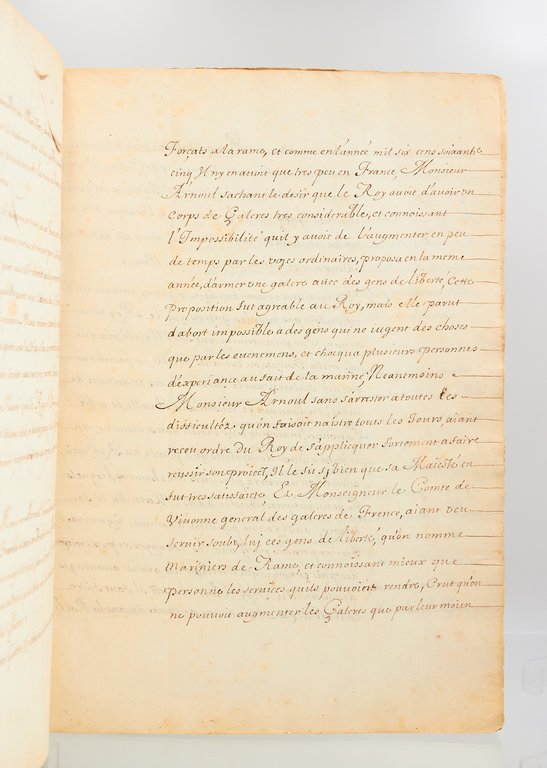 Forçats a la rame, et comme en l'année mil six cens soixante
cinq, Il ny en avoit que tres peu en France, Monsieur
Arnoul sachant le desir que le Roy avoit d'avoir un
Corps de Galeres tres considerable, et connoissant
l'Impossibilité quil y avoit de l'augmenter en peu
de temps par les voyes ordinaires, proposa en la meme
année, d'armer une galere avec des gens de liberté, Cette
proposition fut agreable au Roy, mais elle parut
d'abort impossible a des gens qui ne jugent des choses
que par les evenemens, et chocqua plusieurs personnes
d'experiance au fait de la marine; Neantmoins
Monsieur Arnoul sans s'arrester a toutes les
difficultéz qu'on faisoit naistre touts les Jours, aiant
receu ordre du Roy de s'applicquer fortement a faire
reussir son proiect, Il le fit sj bien que sa Maiesté en
fut tres satisfaicte, Et Monseigneur le Comte de
Vivonne general des galeres de Frence, aiant veu
servir soubz luj ces gens de liberté, qu'on nomme
Mariniers de Rame, et connoissant mieux que
personne les services quils pouvoient rendre, Crut qu'on
ne pouvoit augmenter les Galeres que par leur moien